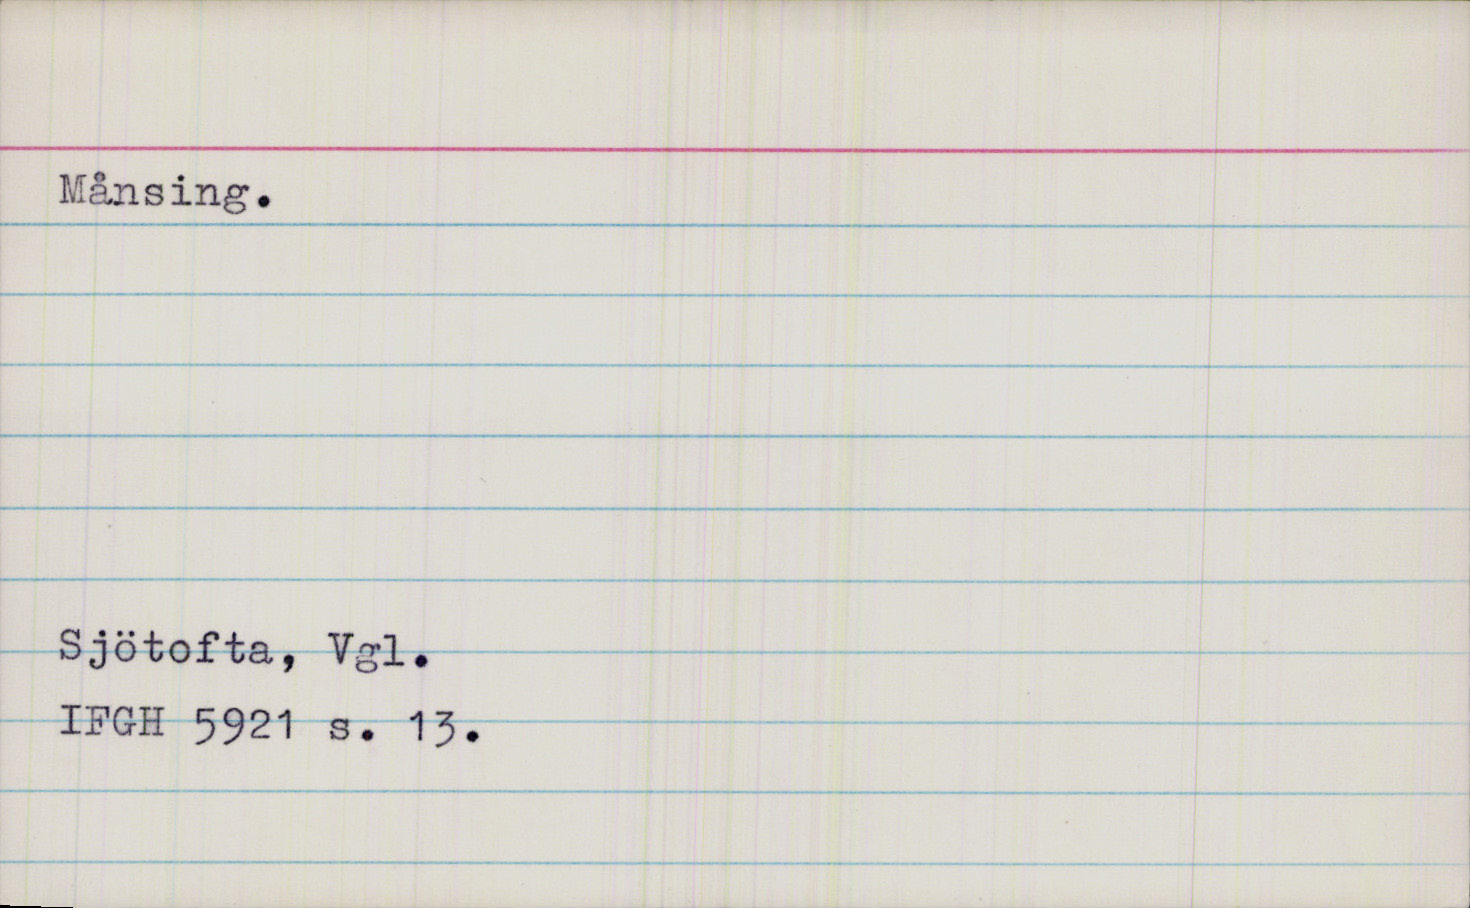 Månsing.
Sjötofta, Vgl.
IFGH 5921 s. 13.